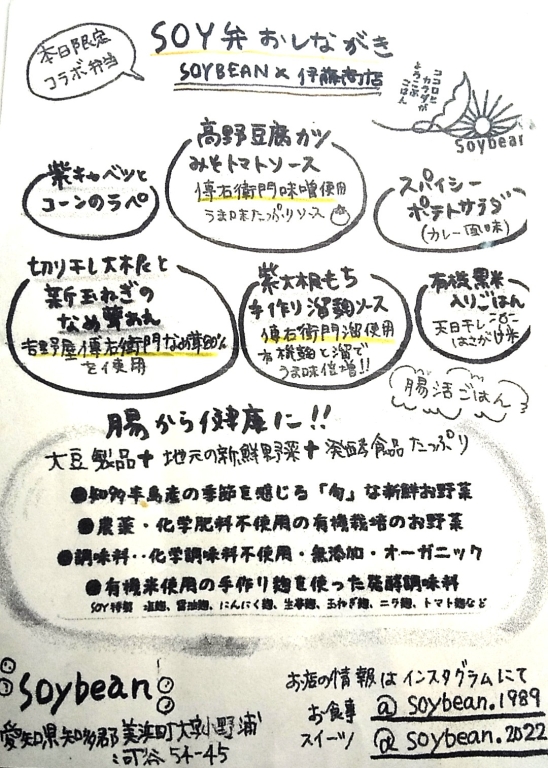 本日限定
コラボ弁当
SOY弁おしながき
SOYBEAN×伊藤商店
ココロと
カラダが
よろこぶ
ごはん
Soybean
紫キャベツと
コーンのラペ
高野豆腐カツ
みそトマトソース
傳右衛門味噌使用
うま味たっぷりソース
スパイシー
ポテトサラダ
(カレー風味)
切り干し大根と
新玉ねぎの
なめ茸あえ
吉野屋傳右衛門なめ茸80%
を使用
紫大根もち
手作り溜麹ソース
傳右衛門溜使用
有機麹と溜で
うま味倍増!!
有機黒米
入りごはん
天日干し
はさがけ米
腸活ごはん
腸から健康に!!
大豆製品+地元の新鮮野菜+発酵食品たっぷり
●知多半島産の季節を感じる「旬」な新鮮お野菜
●農薬・化学肥料不使用の有機栽培のお野菜
●調味料‥化学調味料不使用・無添加・オーガニック
●有機米使用の手作り麹を使った発酵調味料
塩麹、醤油麹、にんにく麹、生姜麹、玉ねぎ麹、ニラ麹、トマト麹など
soybean
愛知県知多郡美浜町大字小野浦
54-45
お店の情報はインスタグラムにて
お食事 @soybean.1989
スイーツ @soybean.2022